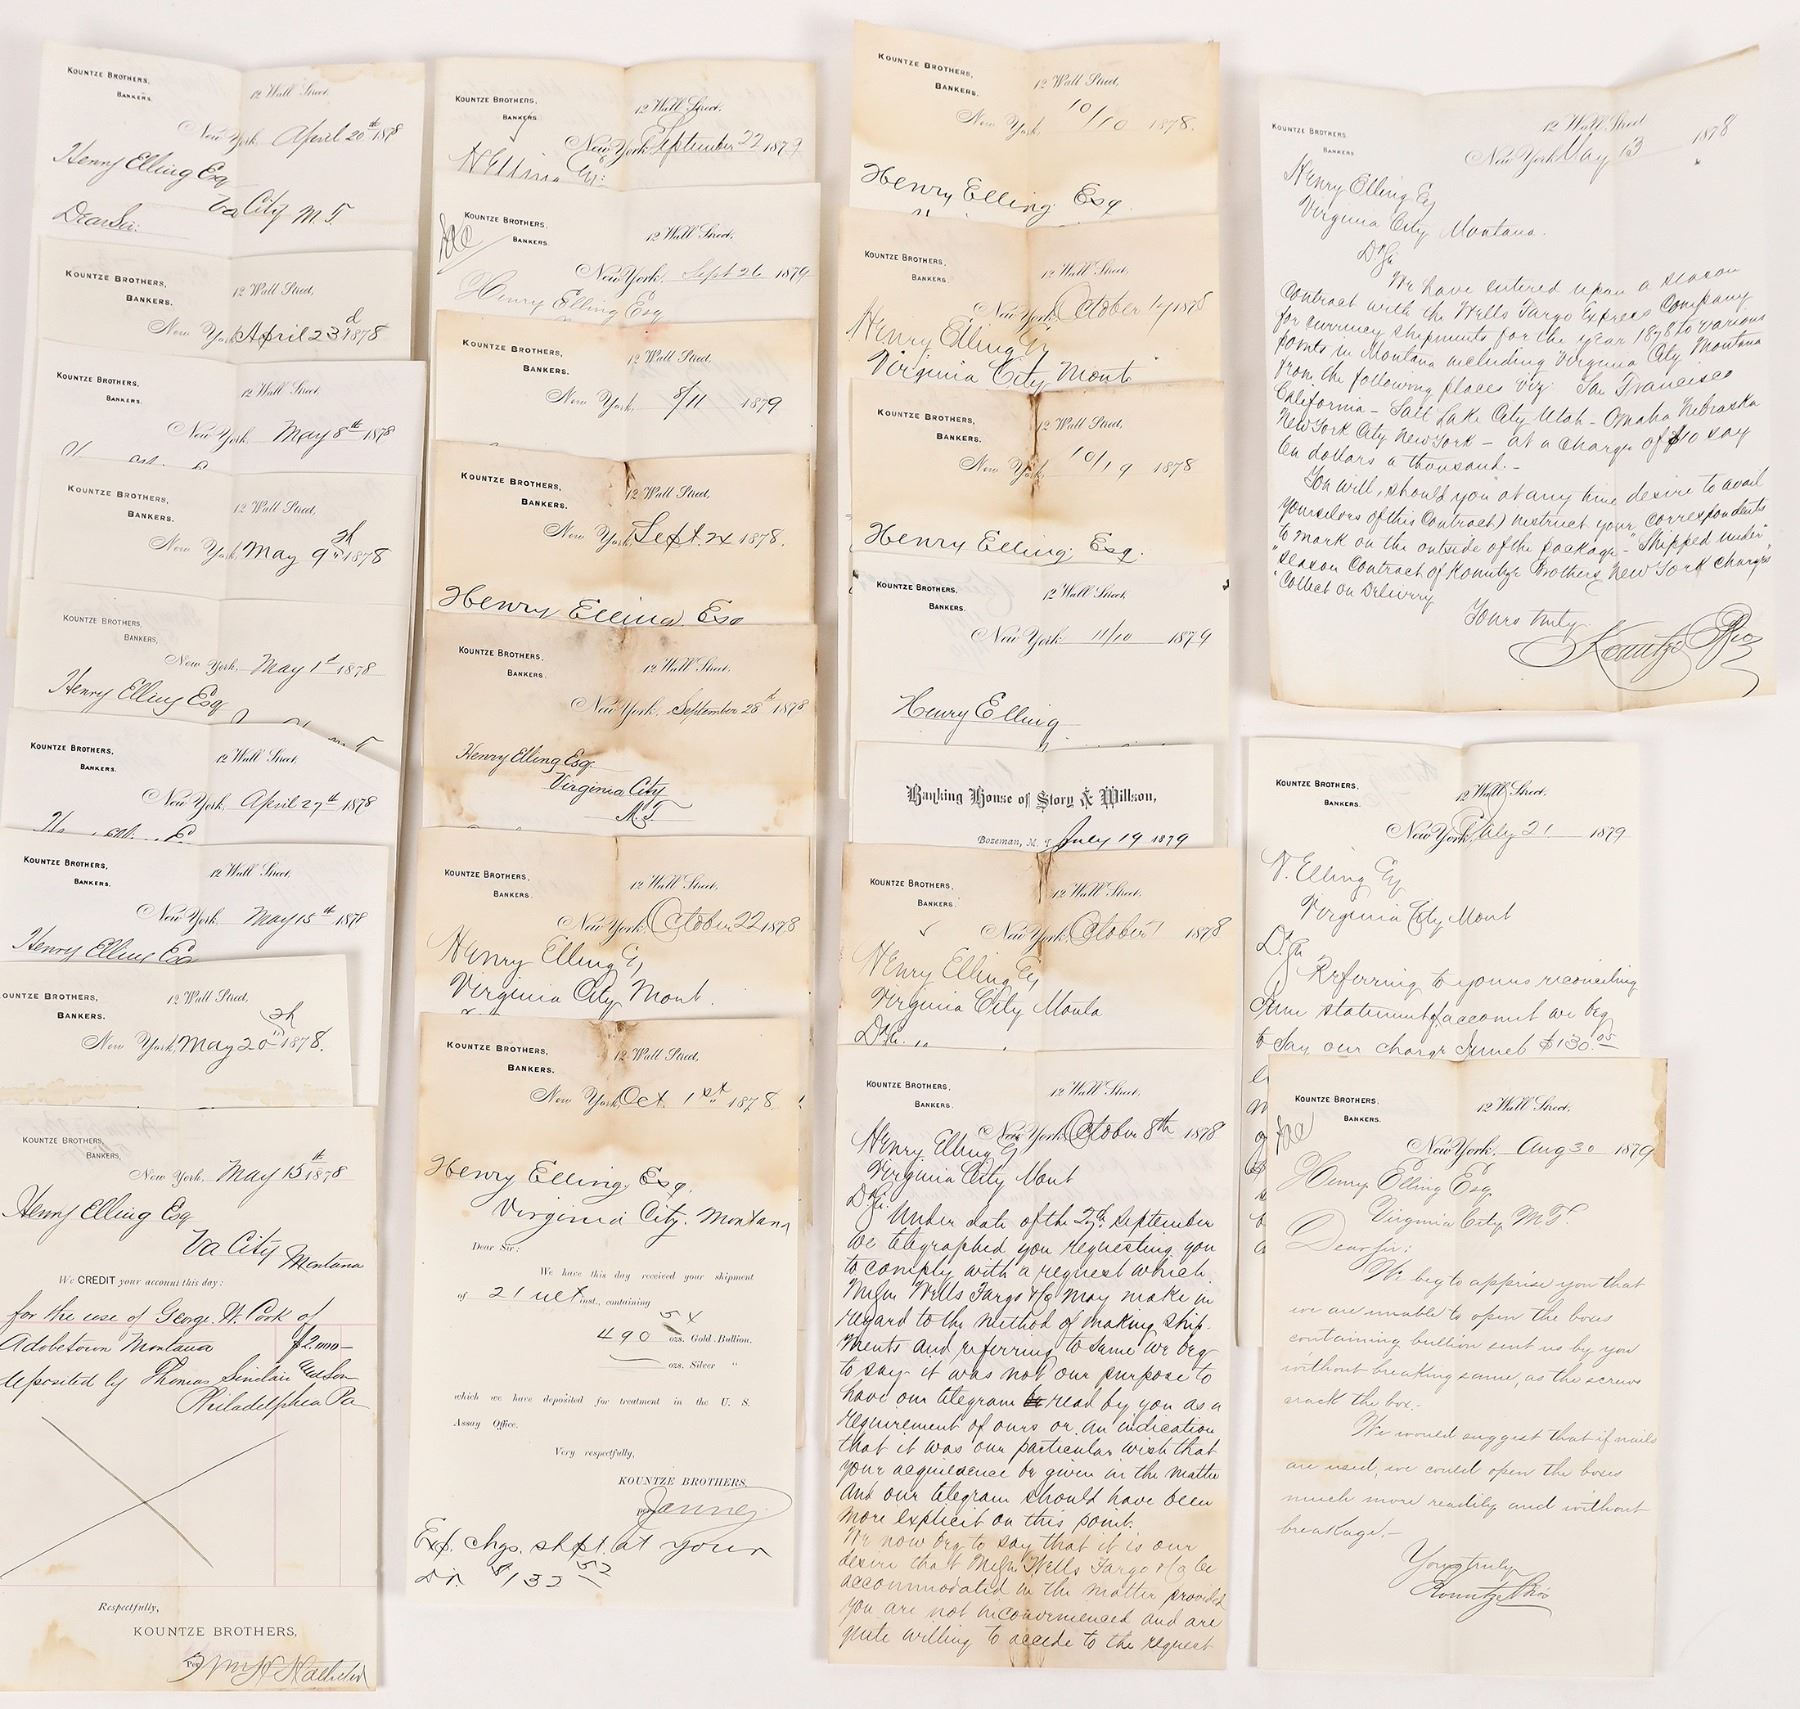 KOUNTZE BROTHERS,
BANKERS.
12 Wall Street,
New York, April 20th 1878
Henry Elling Esq
Va City M. T.
Dear Sir:
KOUNTZE BROTHERS,
BANKERS.
12 Wall Street,
New York, April 23d 1878
KOUNTZE BROTHERS,
BANKERS.
12 Wall Street,
New York, May 8th 1878
KOUNTZE BROTHERS,
BANKERS.
12 Wall Street,
New York, May 9th 1878
KOUNTZE BROTHERS,
BANKERS,
New York, May 1st 1878
Henry Elling Esq
KOUNTZE BROTHERS,
BANKERS.
12 Wall Street,
New York, April 27th 1878
KOUNTZE BROTHERS,
BANKERS.
12 Wall Street,
New York, May 15th 1878
Henry Elling Esq
OUNTZE BROTHERS,
BANKERS.
12 Wall Street,
New York, May 20th 1878.
KOUNTZE BROTHERS,
BANKERS,
New York, May 15th 1878
Henry Elling Esq
Va City Montana
We CREDIT your account this day:
for the use of George W. Cook of
Adobetown Montana $2.000—
deposited by Thomas Sinclair
Philadelphia Pa
Respectfully,
KOUNTZE BROTHERS,
Per
KOUNTZE BROTHERS,
BANKERS.
12 Wall Street,
New York, September 22 1879
H Elling Esq:
KOUNTZE BROTHERS,
BANKERS.
12 Wall Street,
New York, Sept 26 1879
Henry Elling Esq
KOUNTZE BROTHERS,
BANKERS.
12 Wall Street,
New York, 8/11 1879
KOUNTZE BROTHERS,
BANKERS.
12 Wall Street,
New York, Sept. 24 1878.
Henry Elling, Esq
KOUNTZE BROTHERS,
BANKERS.
12 Wall Street,
New York, September 28th 1878
Henry Elling Esq.
Virginia City
M. T.
KOUNTZE BROTHERS,
BANKERS.
12 Wall Street,
New York, October 22 1878
Henry Elling Esq
Virginia City Mont.
KOUNTZE BROTHERS,
BANKERS.
12 Wall Street,
New York, Oct. 1st 1878
Henry Elling, Esq.
Virginia City, Montana
Dear Sir:
We have this day received your shipment
of 21 ult inst., containing
490 54 ozs. Gold Bullion.
ozs. Silver "
which we have deposited for treatment in the U. S.
Assay Office.
Very respectfully,
KOUNTZE BROTHERS,
per Janney.
Exp. chgs. shpt. at your
Dr. $132 52
KOUNTZE BROTHERS,
BANKERS.
12 Wall Street,
New York, 10/10 1878.
Henry Elling Esq.
KOUNTZE BROTHERS,
BANKERS.
12 Wall Street,
New York, October 14 1878
Henry Elling Esq
Virginia City Mont
KOUNTZE BROTHERS,
BANKERS.
12 Wall Street,
New York, 10/19 1878
Henry Elling, Esq.
KOUNTZE BROTHERS,
BANKERS.
12 Wall Street,
New York 11/10 1879
Henry Elling
Banking House of Story & Willson,
Bozeman, M. T. July 19 1879
KOUNTZE BROTHERS,
BANKERS.
12 Wall Street,
New York, October 1 1878
Henry Elling Esq
Virginia City Monta
Dr Sir
KOUNTZE BROTHERS,
BANKERS.
12 Wall Street,
New York, October 8th 1878
Henry Elling Esq
Virginia City Mont
Dr Sir
Under date of the 27th September
we telegraphed you requesting you
to comply with a request which
Messrs Wells Fargo & Co may make in
regard to the method of making ship-
ments and referring to same we beg
to say it was not our purpose to
have our telegram read by you as a
requirement of ours or an indication
that it was our particular wish that
your acquiesence be given in the matter
and our telegram should have been
more explicit on this point.
We now beg to say that it is our
desire that Messrs Wells Fargo & Co be
accommodated in the matter provided
you are not inconvenienced and are
quite willing to accede to the request
KOUNTZE BROTHERS
BANKERS
12 Wall Street
New York May 13 1878
Henry Elling Esq
Virginia City Montana.
Dr Sir
We have entered upon a season
contract with the Wells Fargo Express Company
for currency shipments for the year 1878 to various
points in Montana including Virginia City Montana
from the following places viz: San Francisco
California - Salt Lake City Utah - Omaha Nebraska
New York City New York - at a charge of $10 say
ten dollars a thousand. -
You will, should you at any time desire to avail
yourselves of this Contract) instruct your correspondents
to mark on the outside of the package - "Shipped under
"season Contract of Kountze Brothers New York Charges
"Collect on Delivery
Yours truly
Kountze Bros
KOUNTZE BROTHERS,
BANKERS.
12 Wall Street,
New York, July 21 1879
H. Elling Esq
Virginia City Mont
Dr Sir
Referring to yours reconciling
June statement of account we beg
to say our charge June 5 $130.05
KOUNTZE BROTHERS,
BANKERS.
12 Wall Street,
New York, Aug 30 1879
Henry Elling Esq
Virginia City M. T.
Dear Sir:
We beg to apprise you that
we are unable to open the boxes
containing bullion sent us by you
without breaking same, as the screws
crack the box. -
We would suggest that if nails
are used, we could open the boxes
much more readily and without
breakage. -
Yours truly
Kountze Bros